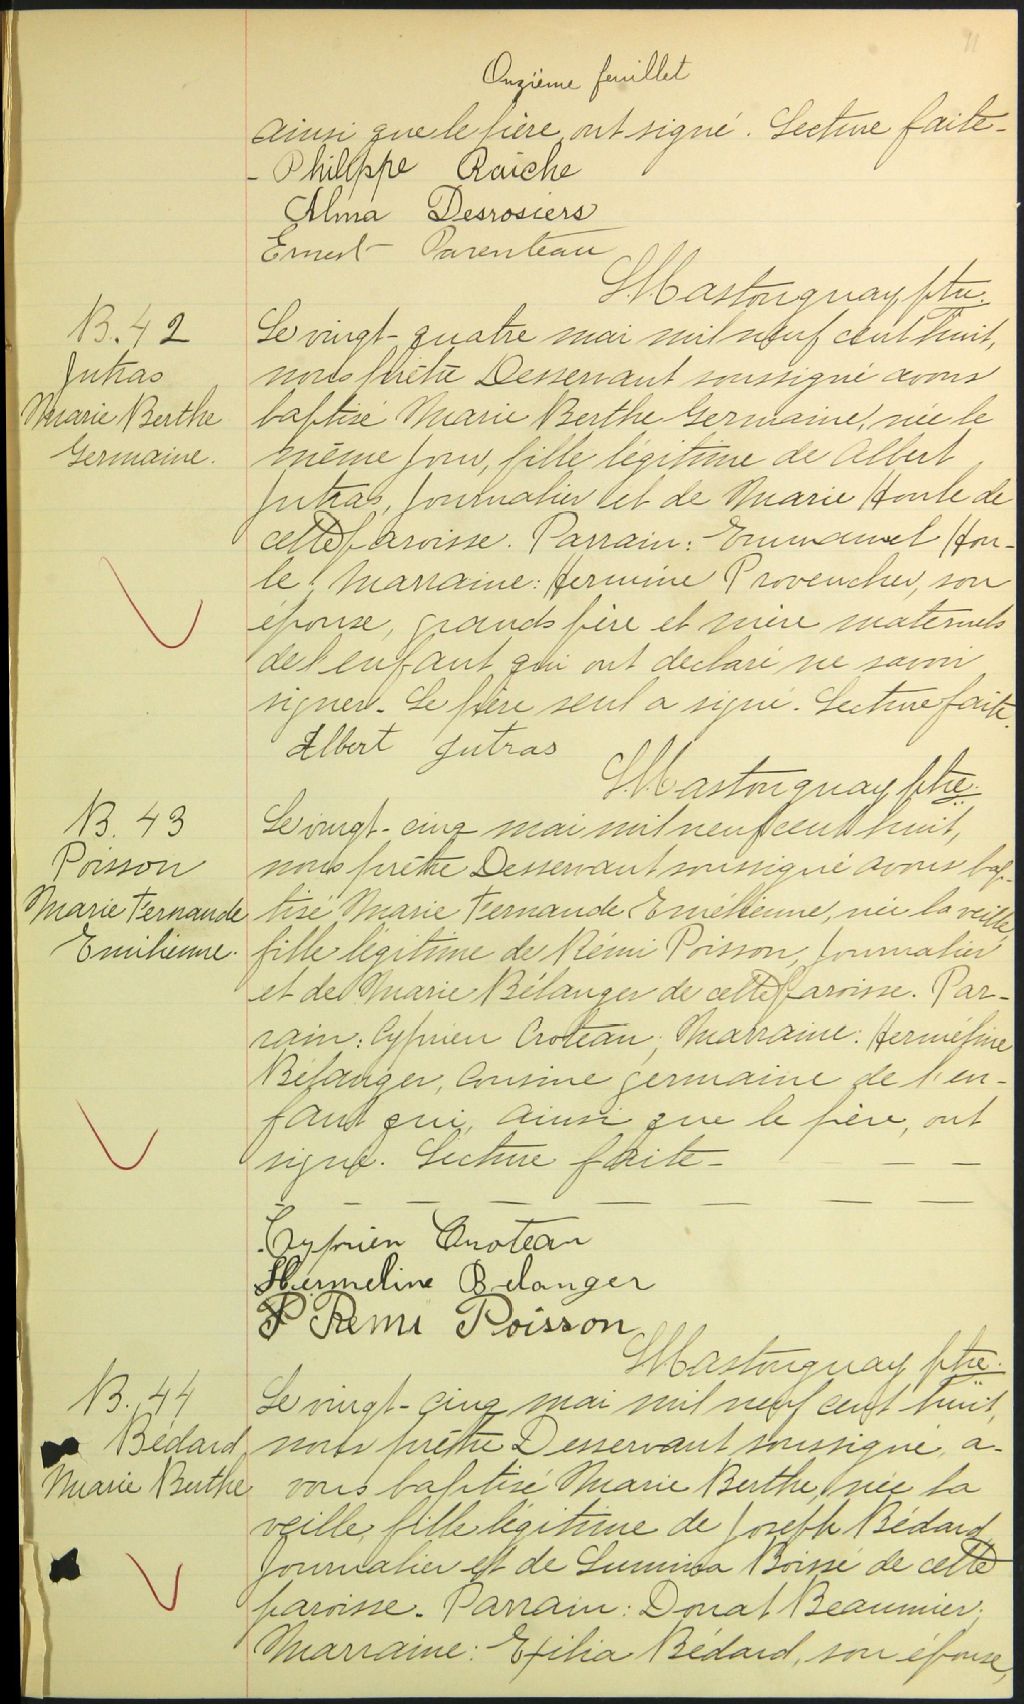 11
Onzième feuillet
ainsi que le père, ont signé. Lecture faite -
- Philippe Raiche
Alma Desrosiers
Ernest Parenteau
Mastonguay, ptre.
B. 42
Jutras
Marie Berthe
Germaine.
Le vingt-quatre mai mil neuf cent huit,
nous prêtre Desservant soussigné avons
baptisé Marie Berthe Germaine, née le
même jour, fille légitime de Albert
Jutras, journalier et de Marie Houle de
cette paroisse. Parrain: Emmanuel Hou-
le, Marraine: Hermine Provencher, son
épouse, grands père et mère maternels
de l'enfant qui ont déclaré ne savoir
signer. Le père seul a signé. Lecture faite.
Albert Jutras
Mastonguay ptre.
B. 43
Poisson
Marie Fernande
Emilienne.
Le vingt-cinq mai mil neuf cent huit,
nous prêtre Desservant soussigné avons bap-
tisé Marie Fernande Emélienne, née la veille,
fille légitime de Rémi Poisson, journalier
et de Marie Bélanger de cette paroisse. Par-
rain: Cyprien Croteau, Marraine: Herméline
Bélanger, cousine germaine de l'en-
fant qui, ainsi que le père, ont
signé. Lecture faite -
Cyprien Croteau
Hermeline Belanger
P Remi Poisson
Mastonguay ptre.
B. 44
Bédard
Marie Berthe
Le vingt-cinq mai mil neuf cent huit,
nous prêtre Desservant soussigné, a-
vons baptisé Marie Berthe, née la
veille, fille légitime de Joseph Bédard
journalier et de Lumina Boissé de cette
paroisse. Parrain: Donat Beaumier,
Marraine: Exilia Bédard, son épouse,